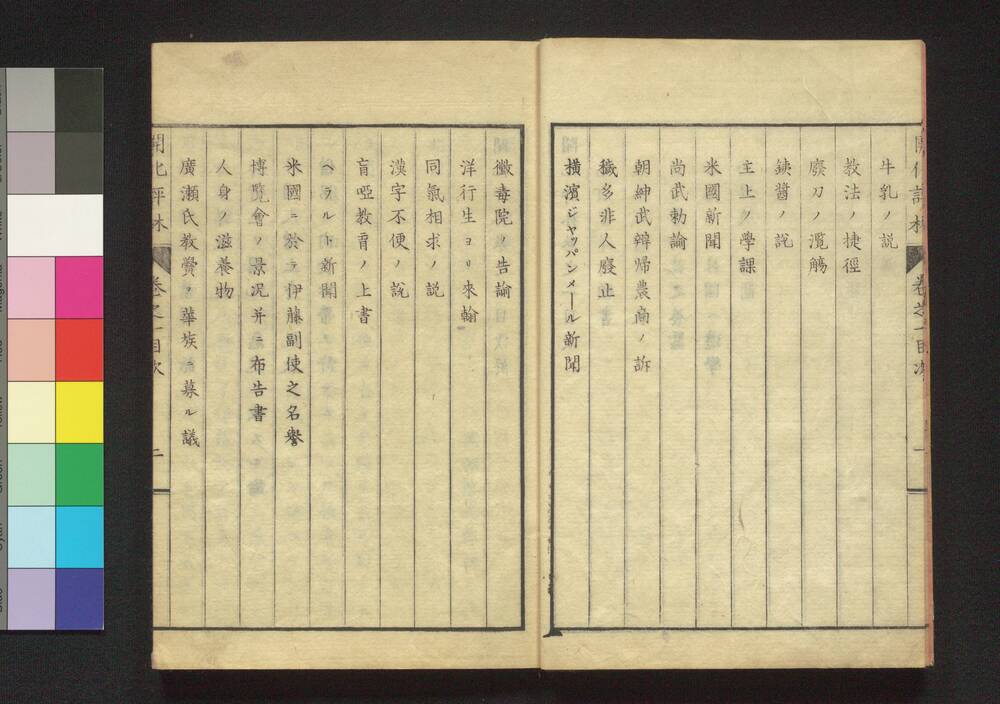 開化評林 卷之一目次 一
牛乳ノ説
教法ノ捷徑
廢刀ノ濫觴
鋏醬ノ説
主上ノ學課
米國新聞
尚武勅諭
朝紳武辯歸農商ノ訴
穢多非人廢止
横濱ジャッパンメール新聞
黴毒院ノ告諭
洋行生ヨリ來翰
同氣相求ノ説
漢字不便ノ説
盲啞教育ノ上書
ヘラルト新聞
米國ニ於テ伊藤副使之名譽
博覽會ノ景况并ニ布告書
人身ノ滋養物
廣瀬氏教黌ヲ華族ニ募ル議
開化評林 卷之一目次 二